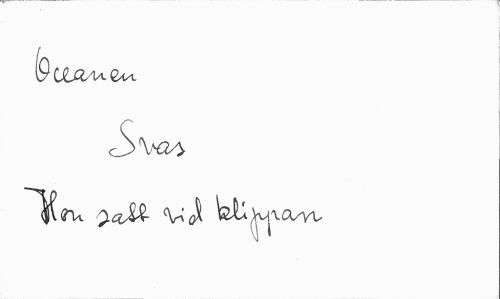 Oceanen
Svas
Hon satt vid klippan